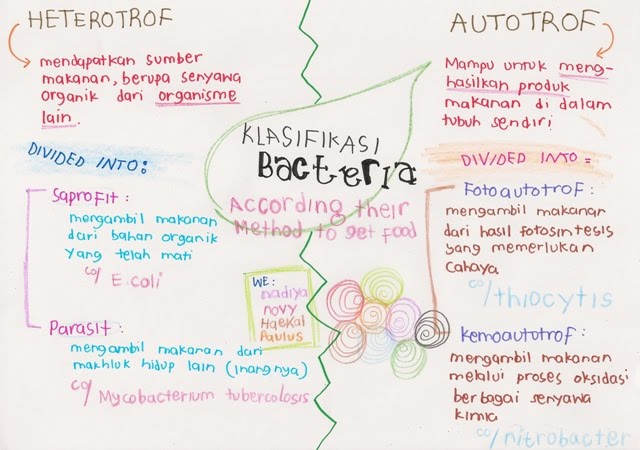 HETEROTROF
mendapatkan sumber
makanan, berupa senyawa
organik dari organisme
lain.
DIVIDED INTO:
Saprofit:
mengambil makanan
dari bahan organik
yang telah mati
co/ E.coli
Parasit:
mengambil makanan dari
makhluk hidup lain (inangnya)
co/ Mycobacterium tubercolosis
KLASIFIKASI
Bacteria
According their
Method to get food
WE:
nadiya
novy
Haekal
Paulus
AUTOTROF
Mampu untuk meng-
hasilkan produk
makanan di dalam
tubuh sendiri
DIVIDED INTO =
Fotoautotrof:
mengambil makanan
dari hasil fotosintesis
yang memerlukan
cahaya
co/thiocytis
Kemoautotrof:
mengambil makanan
melalui proses oksidasi
berbagai senyawa
kimia
co/nitrobacter